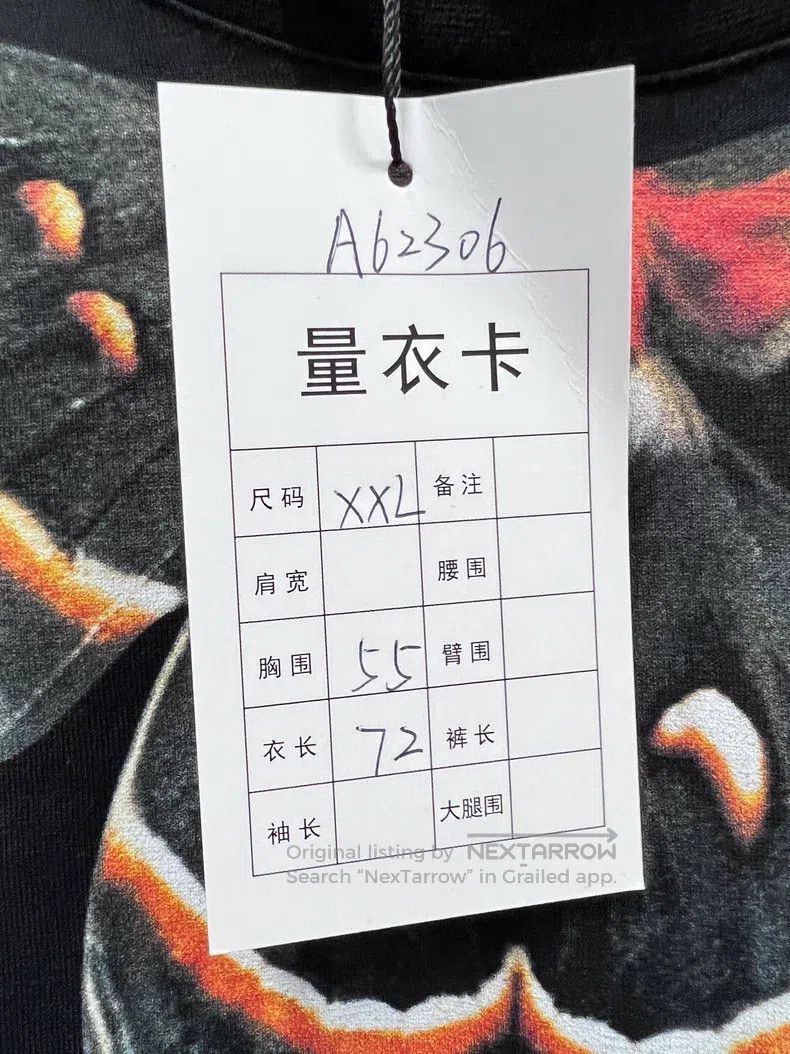 A62306
量衣卡
尺码 XXL 备注
肩宽 腰围
胸围 55 臂围
衣长 72 裤长
袖长 大腿围
Original listing by NEXTARROW
Search “NexTarrow” in Grailed app.